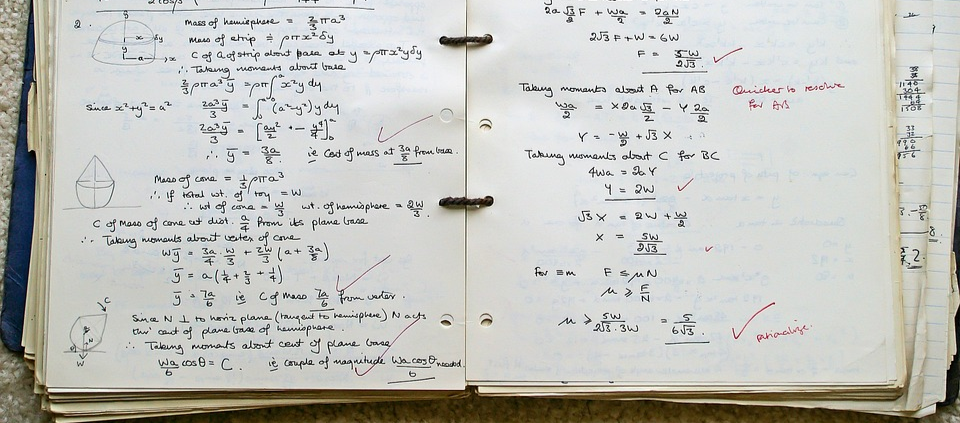 2
Mass of hemisphere = 2/3 πρa³
Mass of strip ≡ ρπx²δy
C of G of strip about base at y = ρπx²yδy
∴ Taking moments about base
2/3 ρπa³ȳ = ρπ∫₀ᵃ x²y dy
Since x²+y²=a² 2a³ȳ/3 = ∫₀ᵃ (a²-y²)y dy
2a³ȳ/3 = [ay²/2 - y⁴/4]₀ᵃ
∴ ȳ = 3a/8 ie Cent of mass at 3a/8 from base.
Mass of cone = 1/3 ρπa³
∴ If total wt. of toy = W
∴ wt of cone = W/3 wt. of hemisphere = 2W/3
C of Mass of cone at dist. a/4 from its plane base
∴ Taking moments about vertex of cone
Wȳ = 3a/4 · W/3 + 2W/3 (a + 3a/8)
ȳ = a(1/4 + 2/3 + 1/4)
ȳ = 7a/6 ie C of Mass 7a/6 from vertex.
Since N ⊥ to horiz plane (tangent to hemisphere) N acts
thro' cent of plane base of hemisphere.
∴ Taking moments about cent of plane base
Wa/6 cosθ = C. ie couple of magnitude Wa cosθ/6 needed.
2a√3 F + Wa/2 = 2aN
2√3 F + W = 6W
F = 5W/2√3
Taking moments about A for AB
Quicker to resolve
for AB
Wa/2 = X 2a √3/2 - Y 2a/2
Y = -W/2 + √3 X
Taking moments about C for BC
4Wa = 2aY
Y = 2W
√3 X = 2W + W/2
X = 5W/2√3
For ≡m F ≤ μN
μ ≥ F/N
μ ≥ 5W/2√3.3W = 5/6√3.
rationalize.